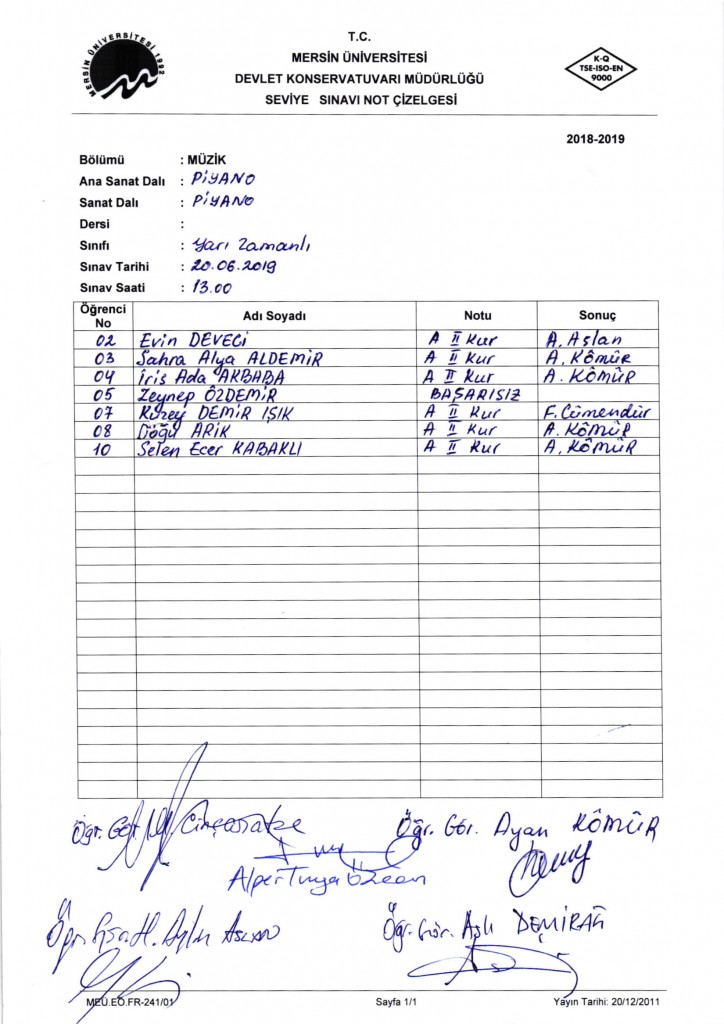 MERSİN ÜNİVERSİTESİ 1992
T.C.
MERSİN ÜNİVERSİTESİ
DEVLET KONSERVATUVARI MÜDÜRLÜĞÜ
SEVİYE SINAVI NOT ÇİZELGESİ
K-Q
TSE-ISO-EN
9000
2018-2019
Bölümü : MÜZİK
Ana Sanat Dalı : PİYANO
Sanat Dalı : PİYANO
Dersi :
Sınıfı : Yarı Zamanlı
Sınav Tarihi : 20.06.2019
Sınav Saati : 13.00
Öğrenci No Adı Soyadı Notu Sonuç
02 Evin DEVECİ A II Kur A. Aslan
03 Sahra Alya ALDEMİR A II Kur A. KÖMÜR
04 İris Ada AKBABA A II Kur A. KÖMÜR
05 Zeynep ÖZDEMİR BAŞARISIZ
07 Kuzey DEMİR IŞIK A II Kur F. Cümendür
08 Doğu ARIK A II Kur A. KÖMÜR
10 Selen Ecer KABAKLI A II Kur A. KÖMÜR
Öğr. Gör.
Öğr. Gör. Ayan KÖMÜR
Alper Tunga Özcan
Öğr. Aylin ASLAN
Öğr. Gör. Aslı DEMİRAĞ
MEÜ.EÖ.FR-241/01 Sayfa 1/1 Yayın Tarihi: 20/12/2011